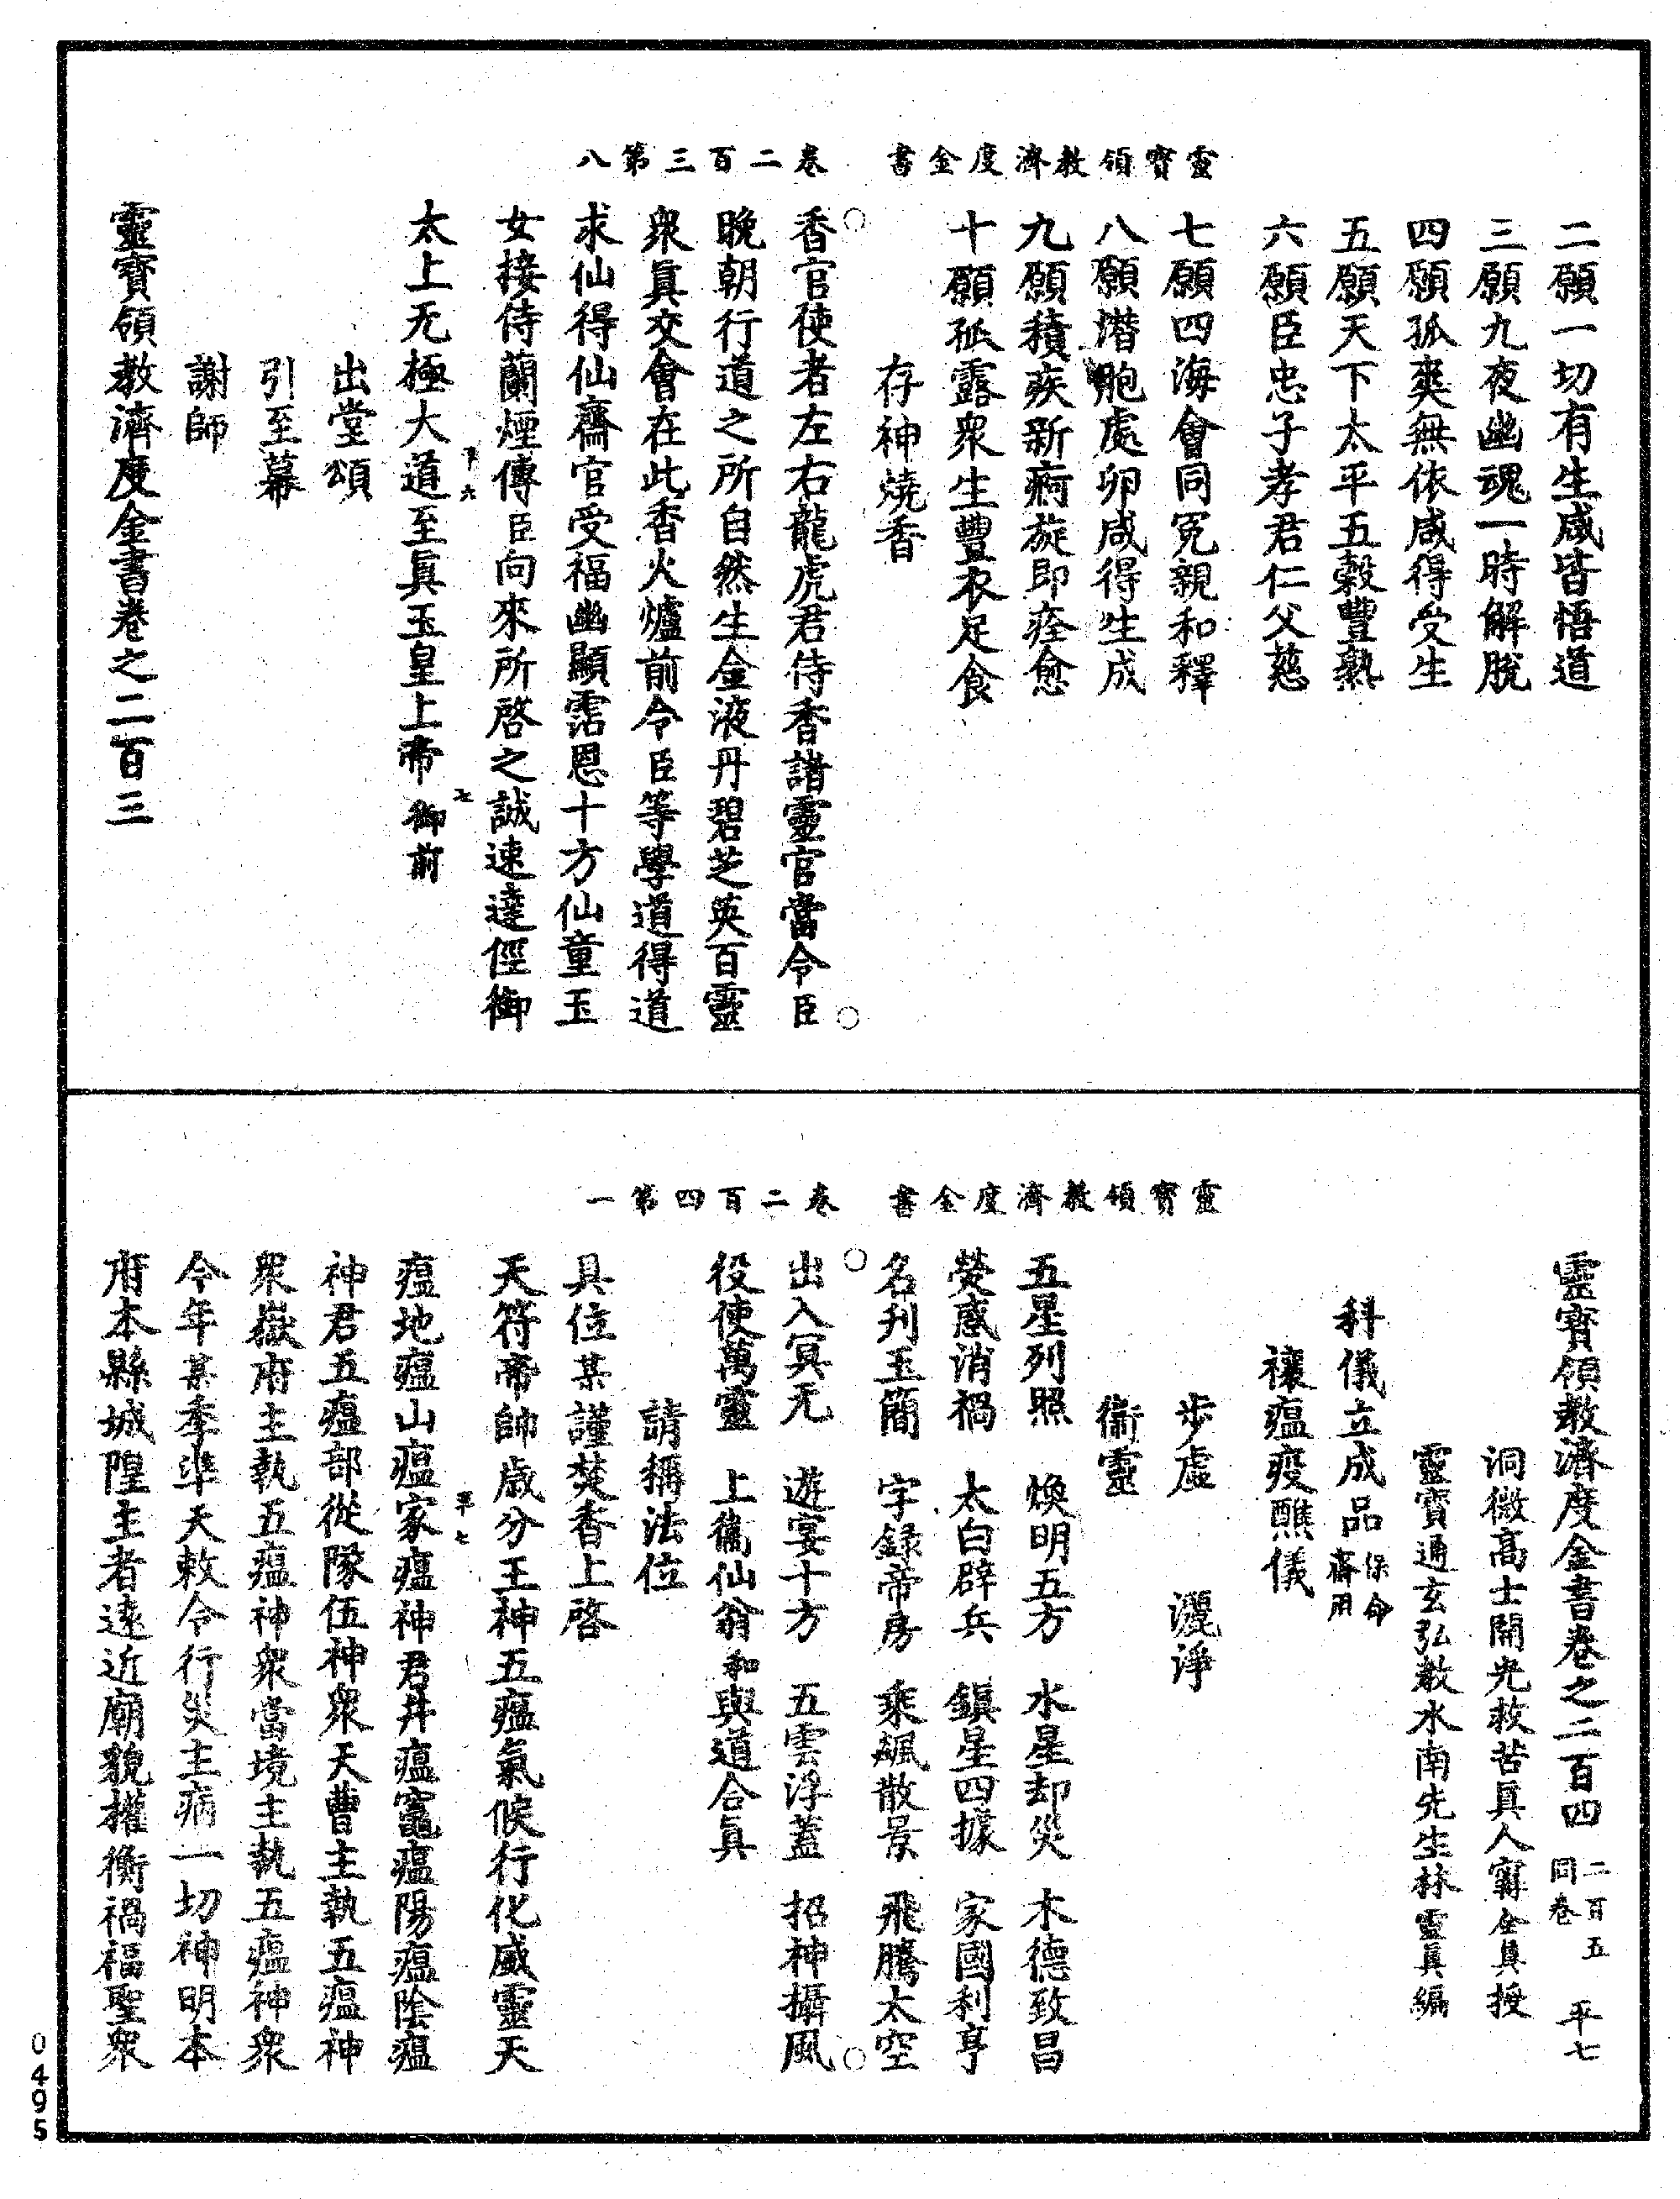 靈寶領教濟度金書　卷二百三第八
二願一切有生咸皆悟道
三願九夜幽魂一時解脫
四願孤爽無依咸得受生
五願天下太平五穀豐熟
六願臣忠子孝君仁父慈
七願四海會同冤親和釋
八願潛胞處卵咸得生成
九願積疾新痾旋即痊愈
十願孤露衆生豐衣足食
存神燒香
香官使者左右龍虎君侍香諸靈官當令臣
晚朝行道之所自然生金液丹碧芝英百靈
衆眞交會在此香火爐前令臣等學道得道
求仙得仙齋官受福幽顯霑恩十方仙童玉
女接侍蘭煙傳臣向來所啓之誠速達徑御
太上无極大道至眞玉皇上帝御前
出堂頌
引至幕
謝師
靈寶領教濟度金書卷之二百三
靈寶領教濟度金書　卷二百四第一
靈寶領教濟度金書卷之二百四 二百五同卷 平七
洞微高士開光救苦眞人甯全眞授
靈寶通玄弘教水南先生林靈眞編
科儀立成品 保命齋用
禳瘟疫醮儀
步虛　灑淨
衞靈
五星列照　煥明五方　水星却災　木德致昌
熒惑消禍　太白辟兵　鎮星四據　家國利亨
名刋玉簡　字録帝房　乘飆散景　飛騰太空
出入冥无　遊宴十方　五雲浮蓋　招神攝風
役使萬靈　上衞仙翁　和與道合眞
請稱法位
具位某謹焚香上啓
天符帝帥歲分王神五瘟氣候行化威靈天
瘟地瘟山瘟家瘟神君井瘟竈瘟陽瘟陰瘟
神君五瘟部從隊伍神衆天曹主執五瘟神
衆嶽府主執五瘟神衆當境主執五瘟神衆
今年某季準天敕令行災主病一切神明本
府本縣城隍主者遠近廟貌權衡禍福聖衆
0495